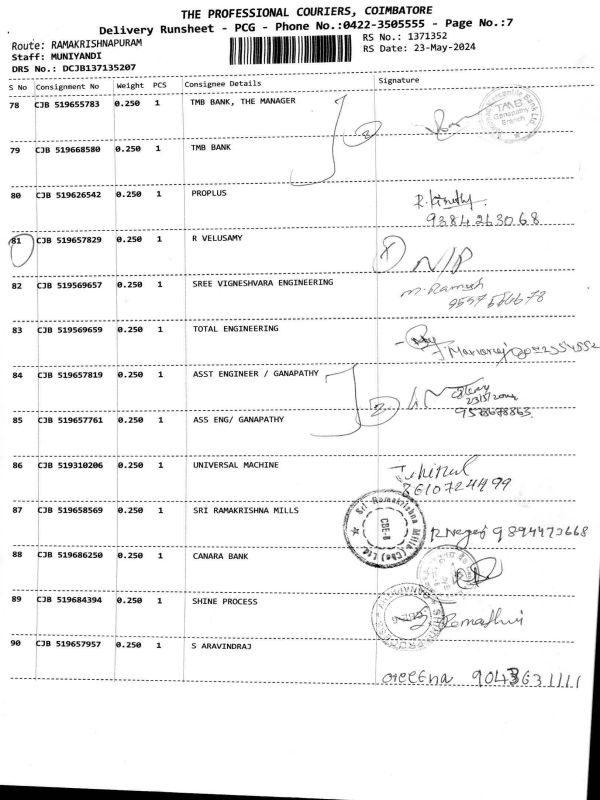 THE PROFESSIONAL COURIERS, COIMBATORE
Delivery Runsheet - PCG - Phone No.:0422-3505555 - Page No.:7
Route: RAMAKRISHNAPURAM
RS No.: 1371352
Staff: MUNIYANDI
RS Date: 23-May-2024
DRS No.: DCJB137135207
S No Consignment No Weight PCS Consignee Details Signature
78 CJB 519655783 0.250 1 TMB BANK, THE MANAGER
TMB
Ganapathy
Branch
79 CJB 519668580 0.250 1 TMB BANK
80 CJB 519626542 0.250 1 PROPLUS
9384263068
81 CJB 519657829 0.250 1 R VELUSAMY
N/P
82 CJB 519569657 0.250 1 SREE VIGNESHVARA ENGINEERING
M. Ramesh
83 CJB 519569659 0.250 1 TOTAL ENGINEERING
84 CJB 519657819 0.250 1 ASST ENGINEER / GANAPATHY
2
85 CJB 519657761 0.250 1 ASS ENG/ GANAPATHY
86 CJB 519310206 0.250 1 UNIVERSAL MACHINE
8610724499
87 CJB 519658569 0.250 1 SRI RAMAKRISHNA MILLS
Sri Ramakrishna Mills (Cbe) Ltd.
CBE-6
9894473668
88 CJB 519686250 0.250 1 CANARA BANK
89 CJB 519684394 0.250 1 SHINE PROCESS
90 CJB 519657957 0.250 1 S ARAVINDRAJ
9043631111